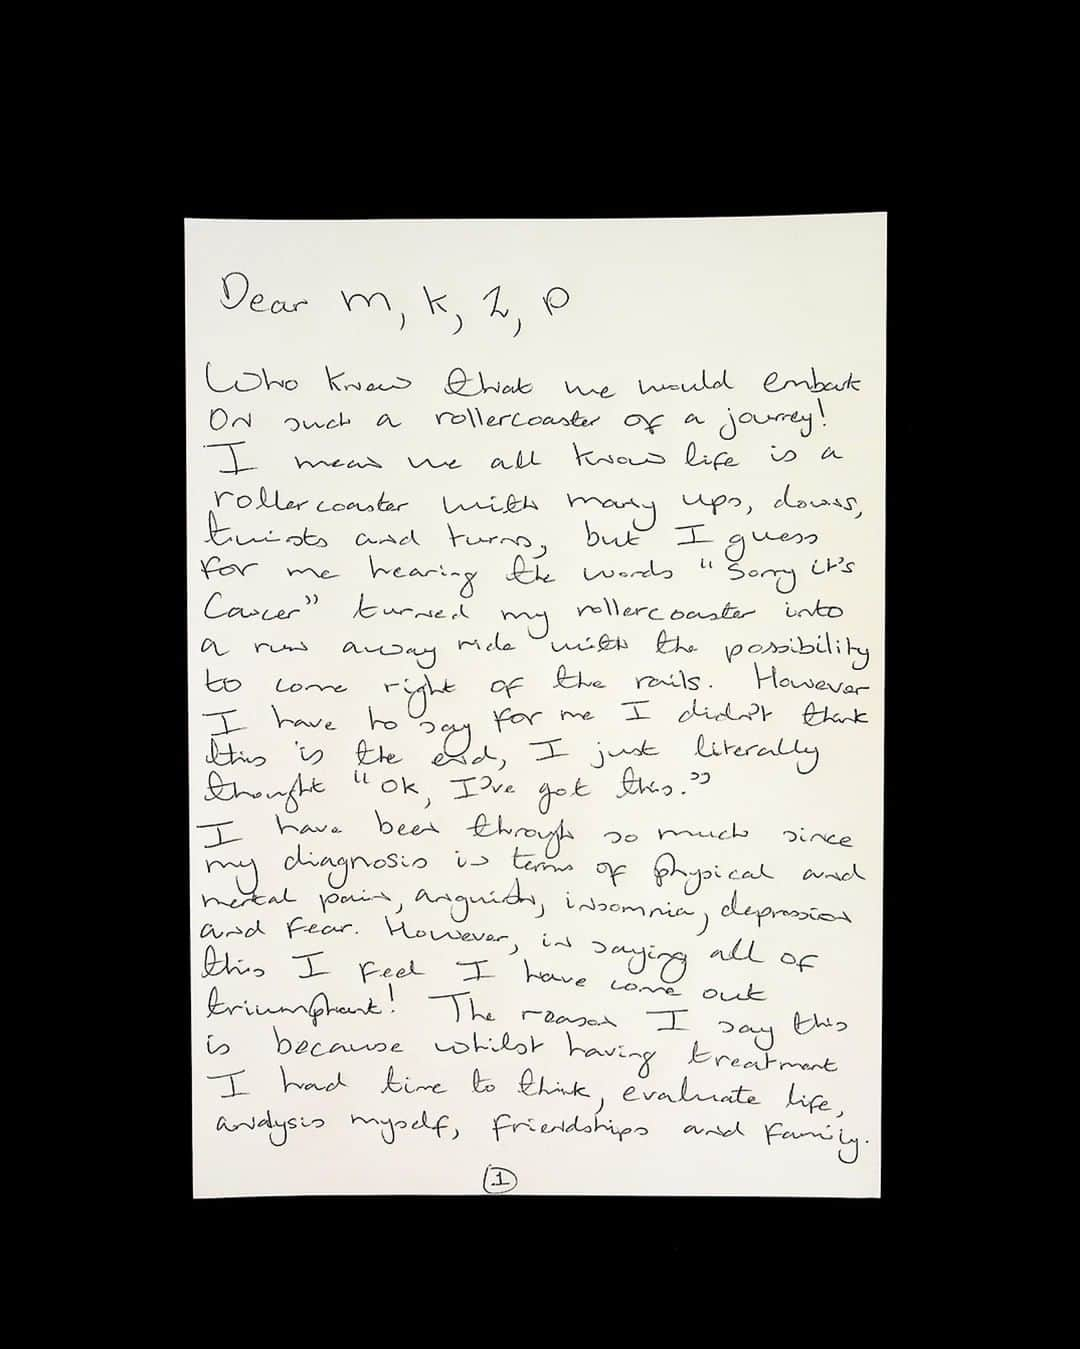 Dear M, K, Z, P
Who knew that we would embark
on such a rollercoaster of a journey!
I mean we all know life is a
rollercoaster with many ups, downs,
twists and turns, but I guess
for me hearing the words "Sorry it's
Cancer" turned my rollercoaster into
a run away ride with the possibility
to come right of the rails. However
I have to say for me I didn't think
this is the end, I just literally
thought "OK, I've got this."
I have been through so much since
my diagnosis in terms of physical and
mental pain, anguish, insomnia, depression
and fear. However, in saying all of
this I feel I have come out
triumphant! The reason I say this
is because whilst having treatment
I had time to think, evaluate life,
analysis myself, friendships and family.
1